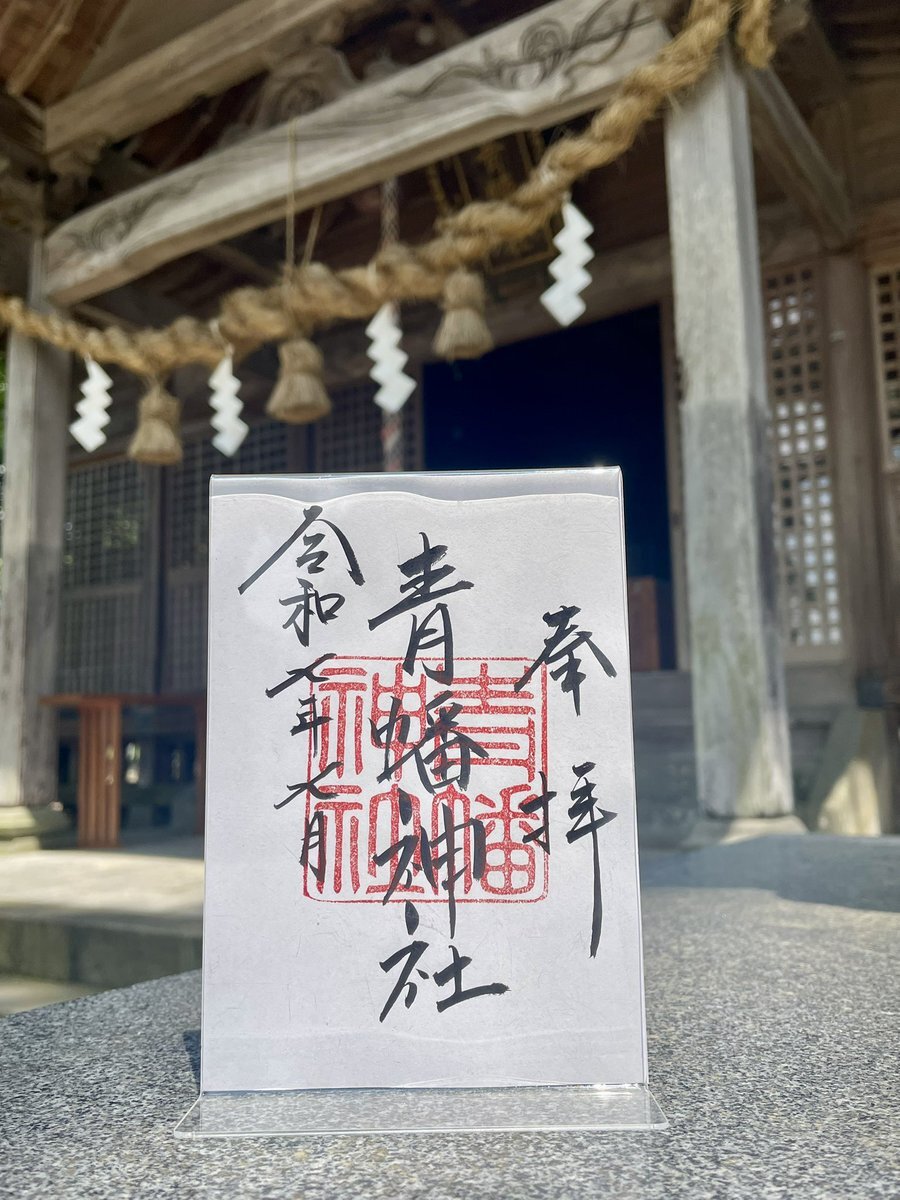 奉拝
青幡神社
令和七年七月
青幡
神社